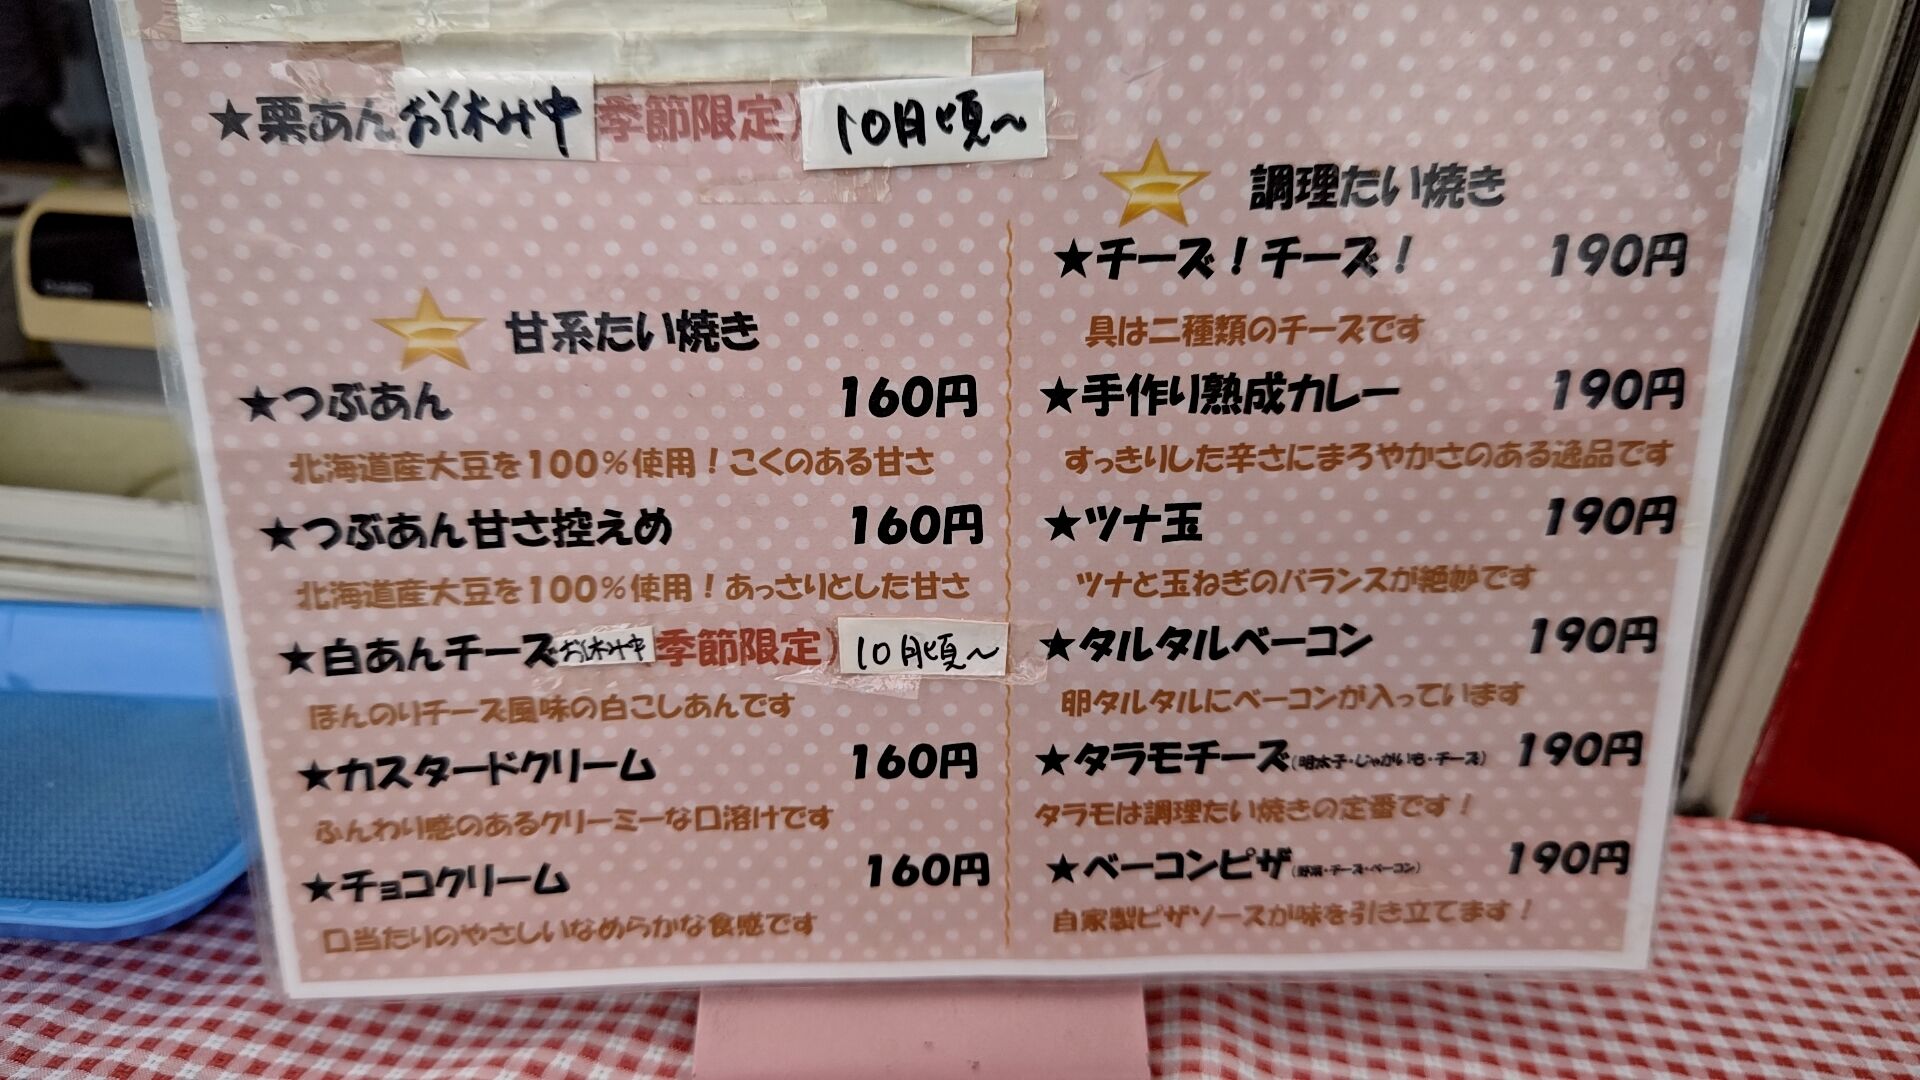 ★栗あんお休み中 季節限定） 10月頃～
甘系たい焼き
★つぶあん 160円
北海道産大豆を100％使用！こくのある甘さ
★つぶあん甘さ控えめ 160円
北海道産大豆を100％使用！あっさりとした甘さ
★白あんチーズお休み中 季節限定） 10月頃～
ほんのりチーズ風味の白こしあんです
★カスタードクリーム 160円
ふんわり感のあるクリーミーな口溶けです
★チョコクリーム 160円
口当たりのやさしいなめらかな食感です
調理たい焼き
★チーズ！チーズ！ 190円
具は二種類のチーズです
★手作り熟成カレー 190円
すっきりした辛さにまろやかさのある逸品です
★ツナ玉 190円
ツナと玉ねぎのバランスが絶妙です
★タルタルベーコン 190円
卵タルタルにベーコンが入っています
★タラモチーズ(明太子・じゃがいも・チーズ) 190円
タラモは調理たい焼きの定番です！
★ベーコンピザ(野菜・チーズ・ベーコン) 190円
自家製ピザソースが味を引き立てます！